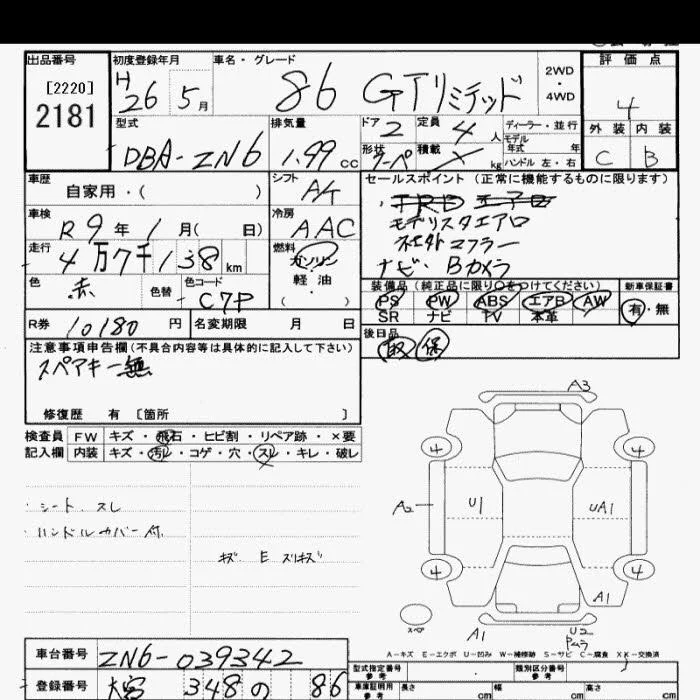 出品番号 初度登録年月 車名・グレード 評価点
[2220]
2181
H26 5月 86 GTリミテッド 2WD・4WD 4
外装 内装
C B
型式 排気量 ドア 2 定員 4人 ディーラー・並行
モデル年式 年
DBA-ZN6 1.99 cc 形状 クーペ 積載 kg ハンドル 左・右
車歴 シフト セールスポイント (正常に機能するものに限ります)
自家用・( )
モデリスタエアロ
社外マフラー
ナビ・Bカメラ
車検 冷房
R9年1月( 日) AAC
走行 燃料
4万7千138km ガソリン
軽油
( )
色 色替 色コード
赤 C7P
装備品 (純正品に限り○をつけてください) 新車保証書
PS PW ABS エアB AW 有・無
SR ナビ TV 本革
R券 10180円 名変期限 月 日
後日品
取 保
注意事項申告欄 (不具合内容等は具体的に記入して下さい)
スペアキー無
修復歴 有 [箇所 ]
検査員 FW キズ・飛石・ヒビ割・リペア跡・×要
記入欄 内装 キズ・汚レ・コゲ・穴・スレ・キレ・破レ
・シート スレ
・ハンドルカバー付
キズ E スリキズ
A3
4 4
A2 U1 UA1
4 4
A1
スペア A1 U2
A-キズ E-エクボ U-凹み W-補修跡 S-サビ C-腐食 XX-交換済
車台番号 ZN6-039342
登録番号 大宮 348 の 86
型式指定番号 参考 類別区分番号 参考
車庫証明用 参考 長さ cm 幅 cm 高さ cm